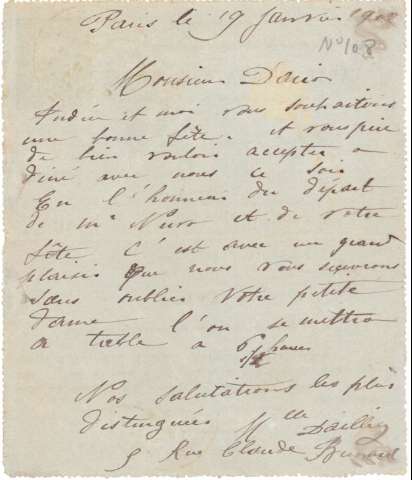 Paris le 19 Janvier 1902
No 108
Monsieur
et moi vous souhaitons
une bonne fête. et vous prie
de bien vouloir accepter a
diné avec nous ce soir
En l'honneur du départ
de mr et de votre
fête c'est avec un grand
plaisir que nous vous
sans oublier votre petite
dame l'on se mettra
a table a 6 1/2 heures
Nos salutations les plus
distinguées Mlle
5 Rue Claude Bernard